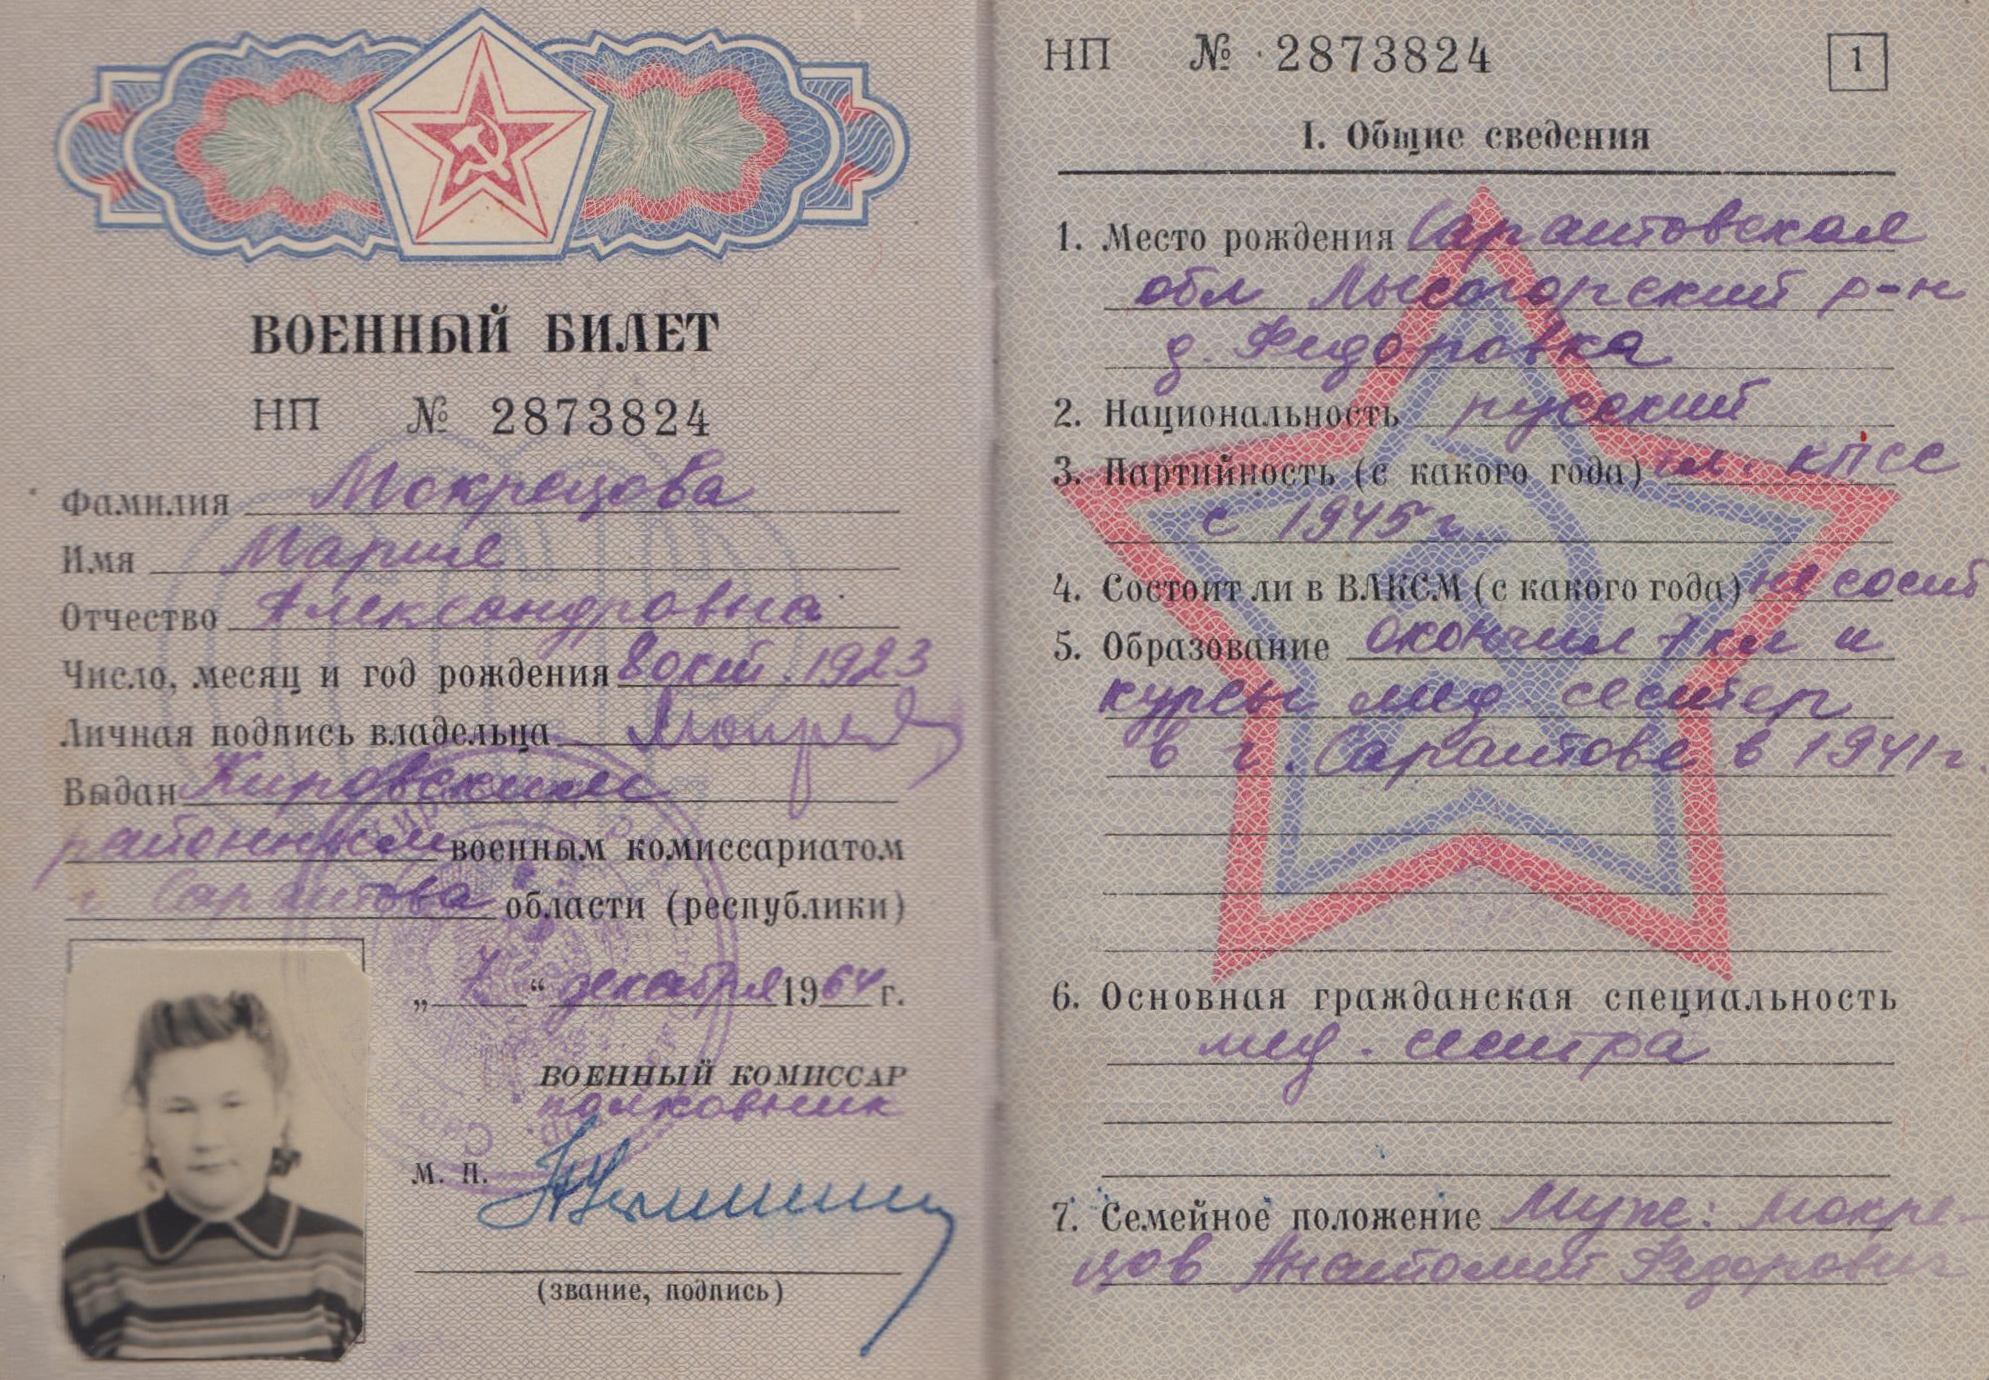 ВОЕННЫЙ БИЛЕТ
НП № 2873824
Фамилия Мокрецова
Имя Мария
Отчество Александровна
Число, месяц и год рождения 8 окт. 1923
Личная подпись владельца
Выдан Кировским
районным военным комиссариатом
г Саратова области (республики)
„ 7 “ декабря 1964 г.
ВОЕННЫЙ КОМИССАР
полковник
М. П.
(звание, подпись)
НП № 2873824
1
I. Общие сведения
1. Место рождения Саратовская
обл Лысогорский р-н
д. Федоровка
2. Национальность русский
3. Партийность (с какого года) чл. КПСС
с 1945 г.
4. Состоит ли в ВЛКСМ (с какого года) не сост
5. Образование окончил 7 кл и
курсы мед сестер
в г. Саратове в 1941 г.
6. Основная гражданская специальность
мед. сестра
7. Семейное положение Муж: Мокре-
цов Анатолий Федорович